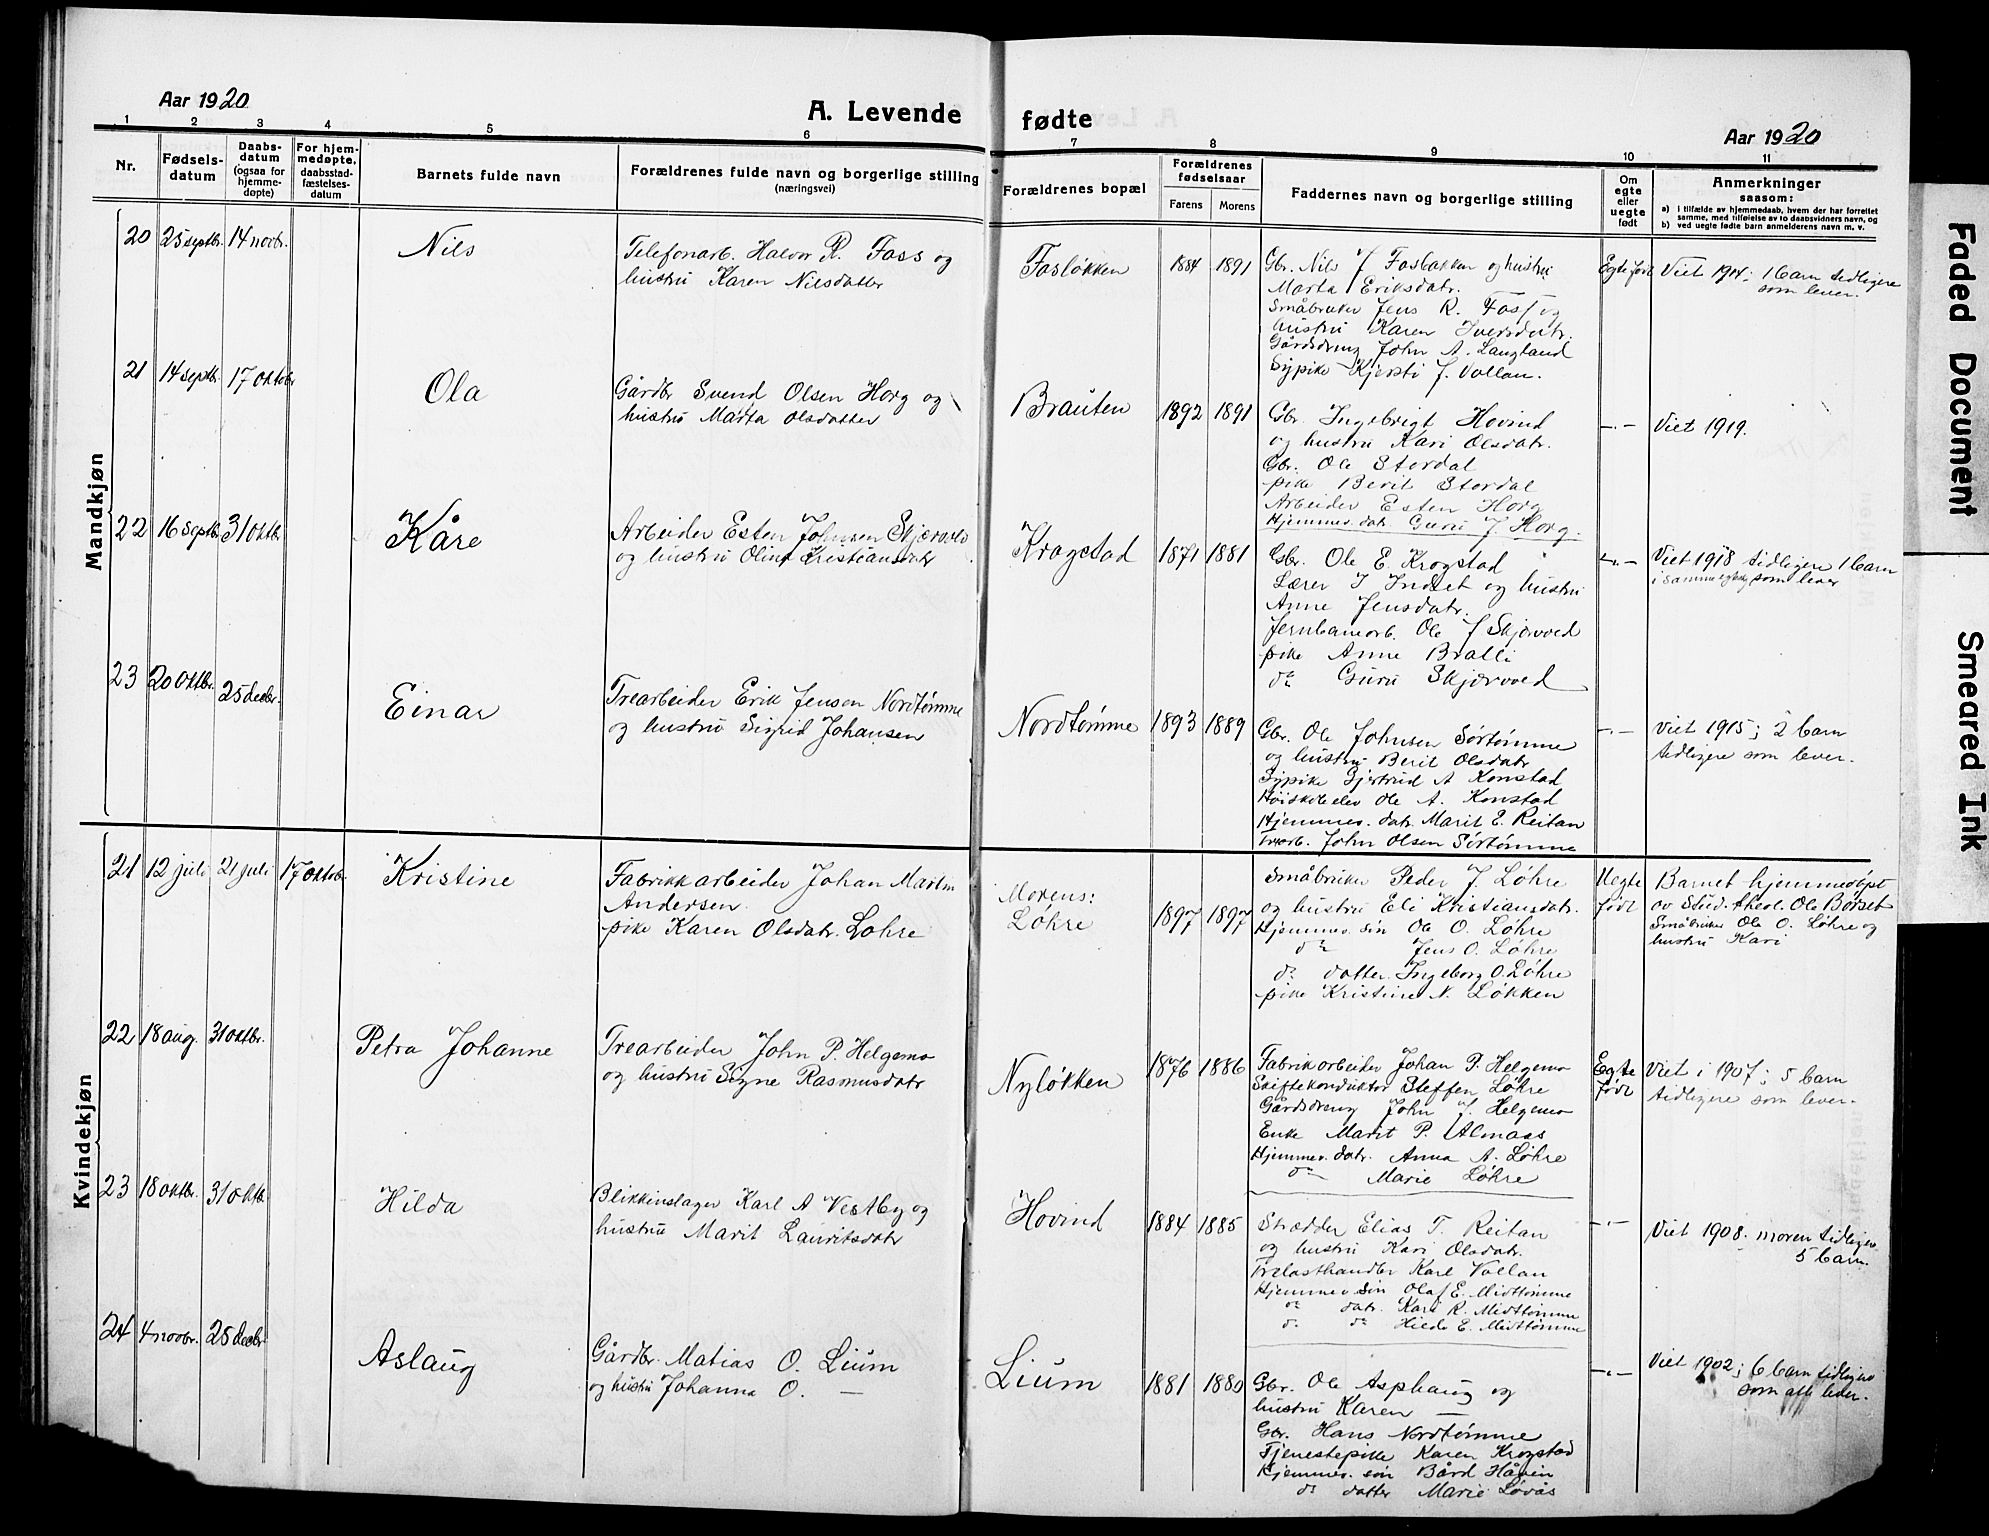 Aar 1920
A. Levende fødte
Aar 1920
1 2 3 4 5 6 7 8 9 10 11
Nr.
Fødsels-
datum
Daabs-
datum
(ogsaa for
hjemme-
døpte)
For hjem-
medøpte,
daabsstad-
fæstelses-
datum
Barnets fulde navn
Forældrenes fulde navn og borgerlige stilling
(næringsvei)
Forældrenes bopæl
Forældrenes
fødselsaar
Farens Morens
Faddernes navn og borgerlige stilling
Om
egte
eller
uegte
født
Anmerkninger
saasom:
a) i tilfælde av hjemmedaab, hvem der har forrettet
samme, med tilføielse av to daabsvidners navn, og
b) ved uegte fødte barn anmelderens navn m. v.
Mandkjøn
20 25 septbr. 14 novbr. Nils
Telefonarb. Halvor R. Foss og
hustru Karen Nilsdatter
Fosløkken 1884 1891
Gbr. Nils J Fosbakken og hustru
Marta Eriksdatr.
Småbruker Jens R. Foss og
hustru Karen Iversdatr.
Gårdsdreng John A. Langland
Sypike Kjersti J. Vollan.
Egte født
Viet 1914; 1 barn tidligere
som lever.
21 14 septb. 17 oktobr Ola
Gårdbr Svend Olsen Horg og
hustru Marta Olsdatter
Brauten 1892 1891
Gbr. Ingebrigt Hovind
og hustru Kari Olsdatr.
Gbr. Ole Stordal
pike Berit Stordal
Arbeider Esten Horg
Hjemmev. datr. Guru J Horg.
—„—
Viet 1919.
22 16 septb. 31 oktbr. Kåre
Arbeider Esten Johnsen Skjærvold
og hustru Olina Kristiansdatr
Krogstad 1871 1881
Gbr. Ole E. Krogstad
Lærer J Indset og hustru
Anne Jensdatr.
Jernbanearb. Ole J Skjærvold
pike Anne Bralli
do Guru Skjærvold
—„—
Viet 1918 tidligere 1 barn
i samme egtesk. som lever
23 20 oktbr. 25 decbr. Einar
Trearbeider Erik Jensen Nordtømme
og hustru Sigrid Johansen
Nordtømme 1893 1889
Gbr. Ole Johnsen Sørtømme
og hustru Berit Olsdatr
Sypike Gjertrud A Konstad
Høiskoleelev Ole A. Konstad
Hjemmev. datr. Marit E. Reitan
Trearb. John Olsen Sørtømme
—„—
Viet 1915; 2 barn
tidligere som lever.
Kvindekjøn
21 12 juli 21 juli 17 oktob. Kristine
Fabrikkarbeider Johan Martin
Andersen.
pike Karen Olsdatr. Løhre
Morens:
Løhre 1897 1897
Småbruker Peder J. Løhre
og hustru Eli Kristiansdatr.
Hjemmev. søn Ole O. Løhre
do Jens O. Løhre
do datter Ingeborg O. Løhre
pike Kristine N. Løkken
Uegte
født
Barnet hjemmedøpt
av Stud. theol. Ole Børset
Småbruker Ole O. Løhre og
hustru Kari
22 18 aug. 31 oktbr. Petra Johanne
Trearbeider John P. Helgemo
og hustru Signe Rasmusdatr
Nyløkken 1876 1886
Fabrikarbeider Johan P. Helgemo
Skiftekonduktør Steffen Løhre
Gårdsdreng John J. Helgemo
Enke Marit P. Almaas
Hjemmev. datr. Anna A. Løhre
do Marie Løhre
Egte
født
Viet i 1907; 5 barn
tidligere som lever.
23 18 oktbr. 31 oktb. Hilda
Blikkenslager Karl A Vestby og
hustru Marit Lauritsdatr
Hovind 1884 1885
Skrædder Elias T. Reitan
og hustru Kari Olsdatr.
Trelasthandler Karl Vollan
Hjemmev søn Olaf E. Midttømme
do datr. Kari R. Midttømme
do do Hilda E. Midttømme
—„—
Viet 1908. moren tidligere
5 barn.
24 4 novbr. 25 decbr Aslaug
Gårdbr. Matias O. Lium
og hustru Johanna O. —
Lium 1881 1880
Gbr. Ole Asphaug og
hustru Karen —
Gbr. Hans Nordtømme
Tjenestepike Karen Krogstad
Hjemmev. søn Bård Håven
do datter Marie Løvås
—„—
Viet 1902; 6 barn tidligere
som alle lever.
Faded Document
Smeared Ink